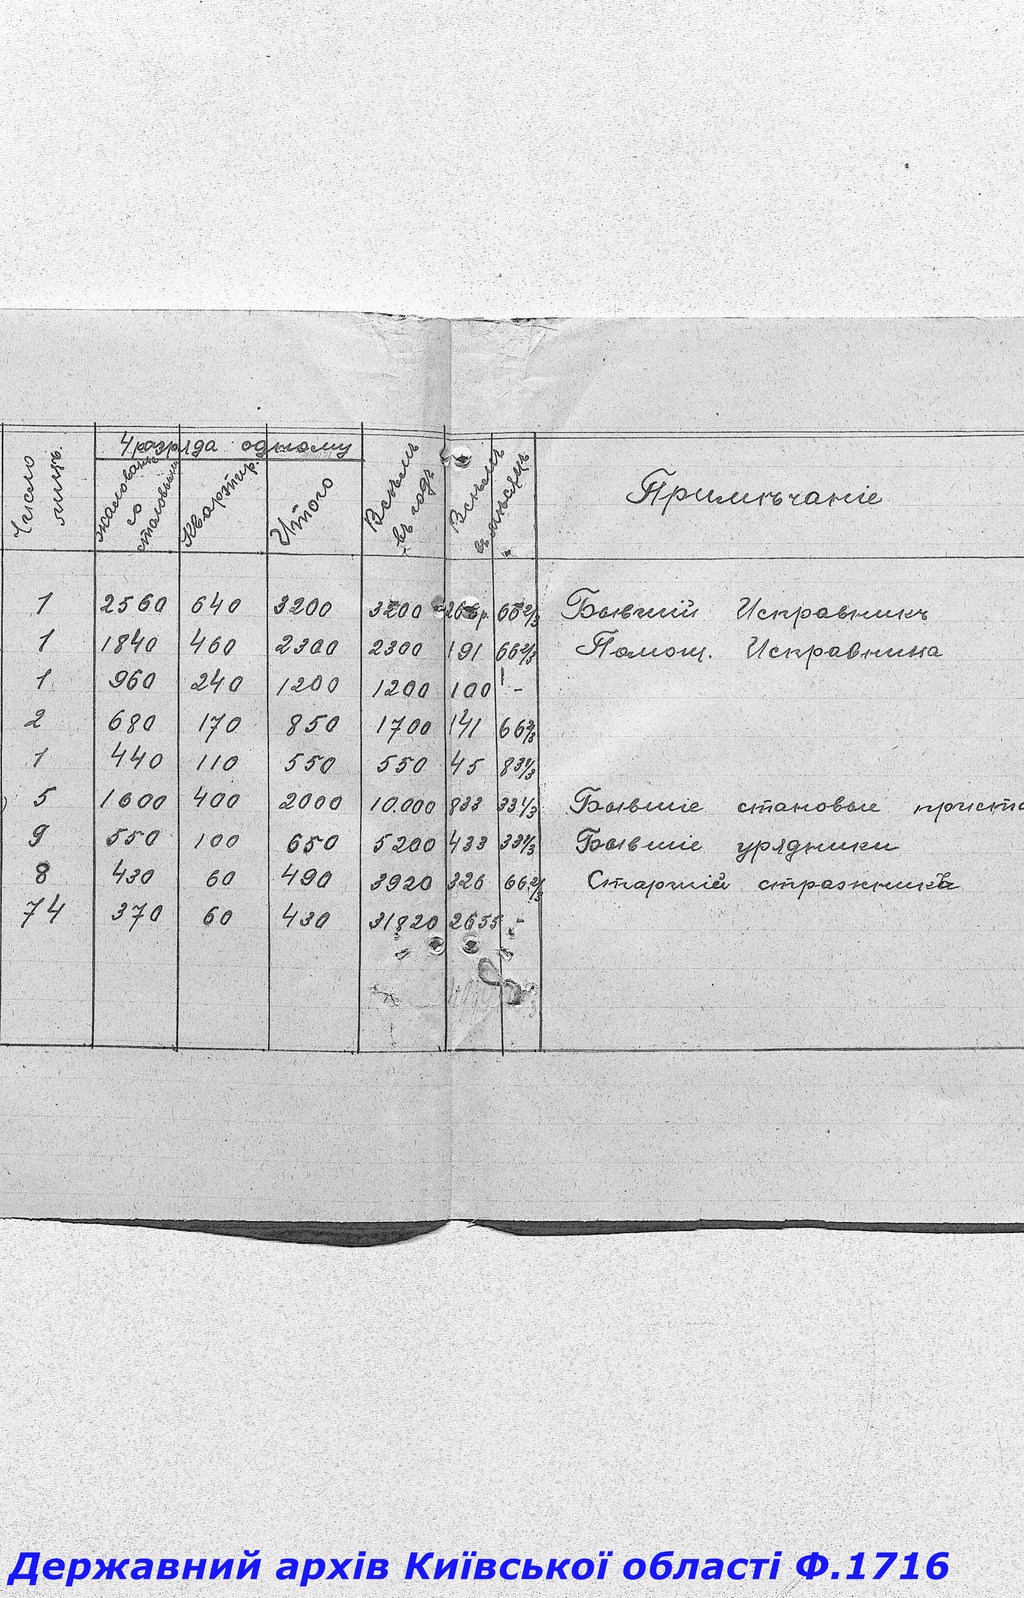 4 разряда одному
Число лицъ. жалованье со столовыми Квартир. Итого Всѣмъ въ годъ Всѣмъ въ мѣсяцъ Примѣчаніе
1 2560 640 3200 3200 266 р. 66 2/3 Бывшій Исправникъ
1 1840 460 2300 2300 191 66 2/3 Помощ. Исправника
1 960 240 1200 1200 100 -
2 680 170 850 1700 141 66 2/3
1 440 110 550 550 45 83 1/3
5 1600 400 2000 10.000 833 33 1/3 Бывшіе становые приста
9 550 100 650 5200 433 33 1/3 Бывшіе урядники
8 430 60 490 3920 326 66 2/3 Старшій стражникъ
74 370 60 430 31820 2655 -
Державний архів Київської області Ф.1716